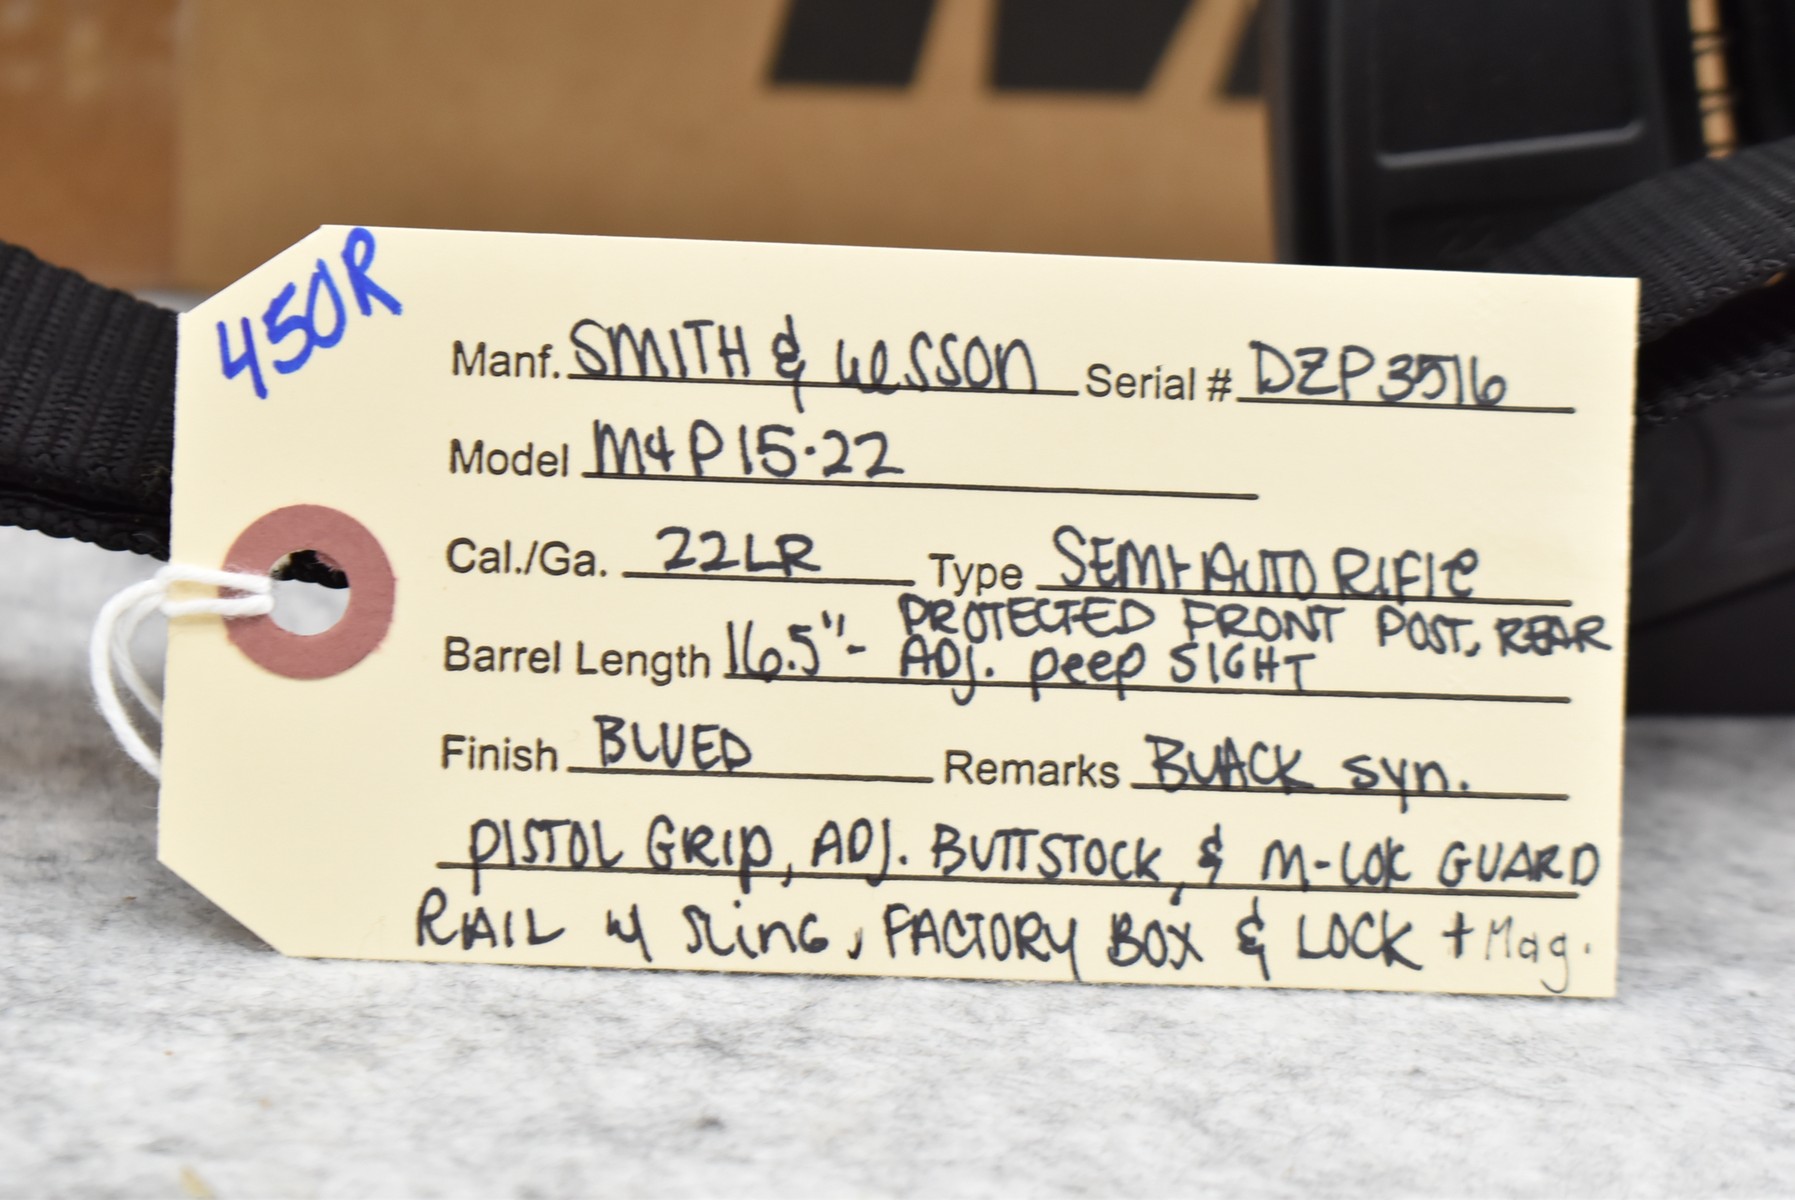 450R
Manf. SMITH & WESSON Serial # DZP3516
Model M&P15-22
Cal./Ga. 22LR Type SEMI AUTO RIFlE
Barrel Length 16.5" - PROTECTED FRONT POST, REAR
ADJ. peep SIGHT
Finish BLUED Remarks BLACK syn.
PISTOL GRIP, ADJ. BUTTSTOCK, & M-LOK GUARD
RAIL w/ SLING, FACTORY BOX & LOCK + Mag.